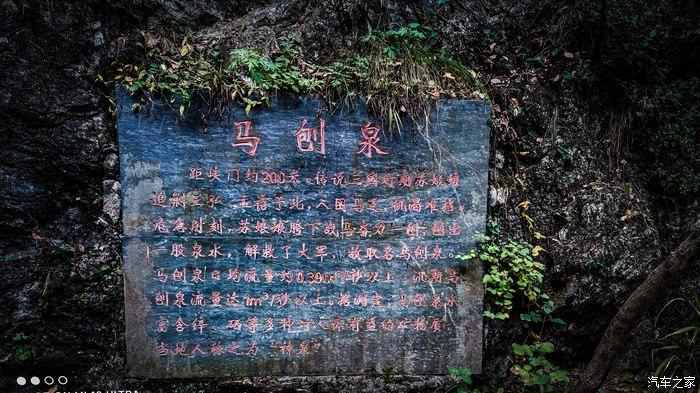 马刨泉
距峡门约200米。传说三国时期苏娘娘
追荆至弘,至 于此,人困马乏,饥渴难挡,
危急时刻,苏娘娘胯下战马奋力一刨,刨出
一股泉水,解救了大军,故取名马刨泉。
马刨泉日均流量约0.39m³/秒以上,汛期马
刨泉流量达1m³/秒以上。据测定,马刨泉水
富含锌、硒等多种对人体有益的矿物质,
当地人称之为“神泉”。
汽车之家